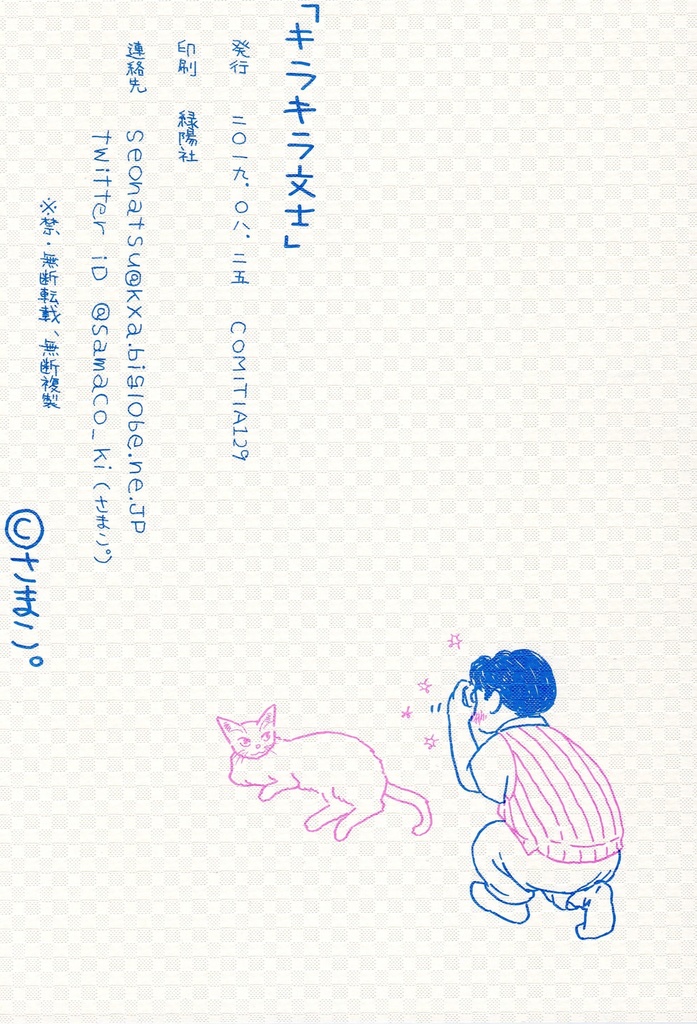 「キラキラ文士」
発行 二〇一九.〇八.二五 COMITIA129
印刷 緑陽社
連絡先 seonatsu@kxa.biglobe.ne.JP
twitter iD @samaco_ki(さまこ°)
※禁・無断転載、無断複製
©さまこ°